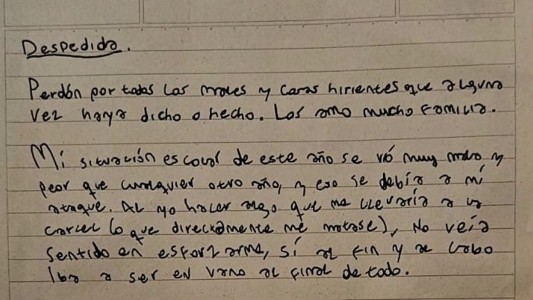 Despedida.
Perdón por todas las males y caras hirientes que alguna
vez haya dicho o hecho. Los amo mucho familia.
Mi situación escolar de este año se vió muy mala y
peor que cualquier otro año, y eso se debía a mí
ataque. Al yo hacer algo que me llevaría a la
carcel (o que directamente me matase), No veía
sentido en esforzarme, sí al fin y al cabo
Iba a ser en vano al final de todo.